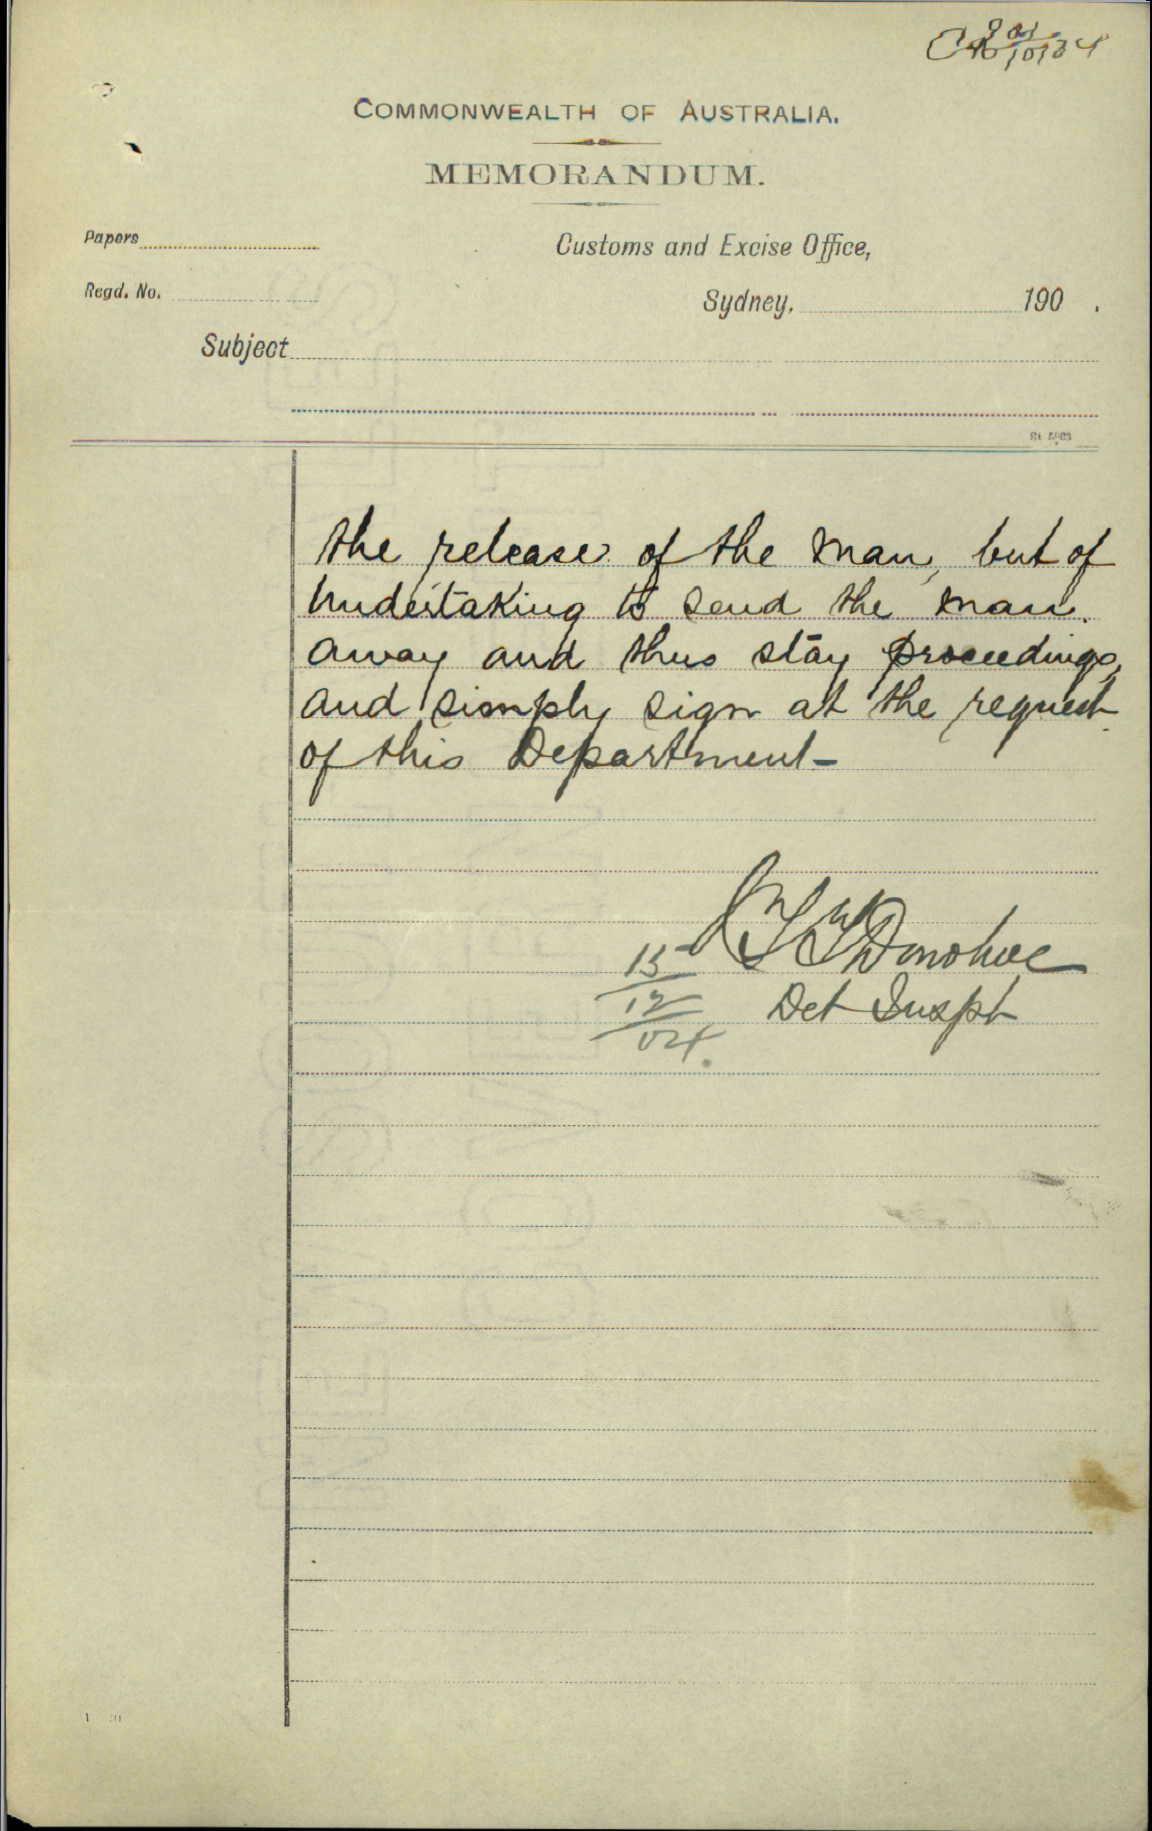 COMMONWEALTH OF AUSTRALIA.
MEMORANDUM.
Papers
Customs and Excise Office,
Regd. No.
Sydney, 190 .
Subject
the release of the man, but of
undertaking to send the man
away and thus stay proceedings,
and simply sign at the request
of this Department -
Donohoe
15/12/04.
Det Inspt